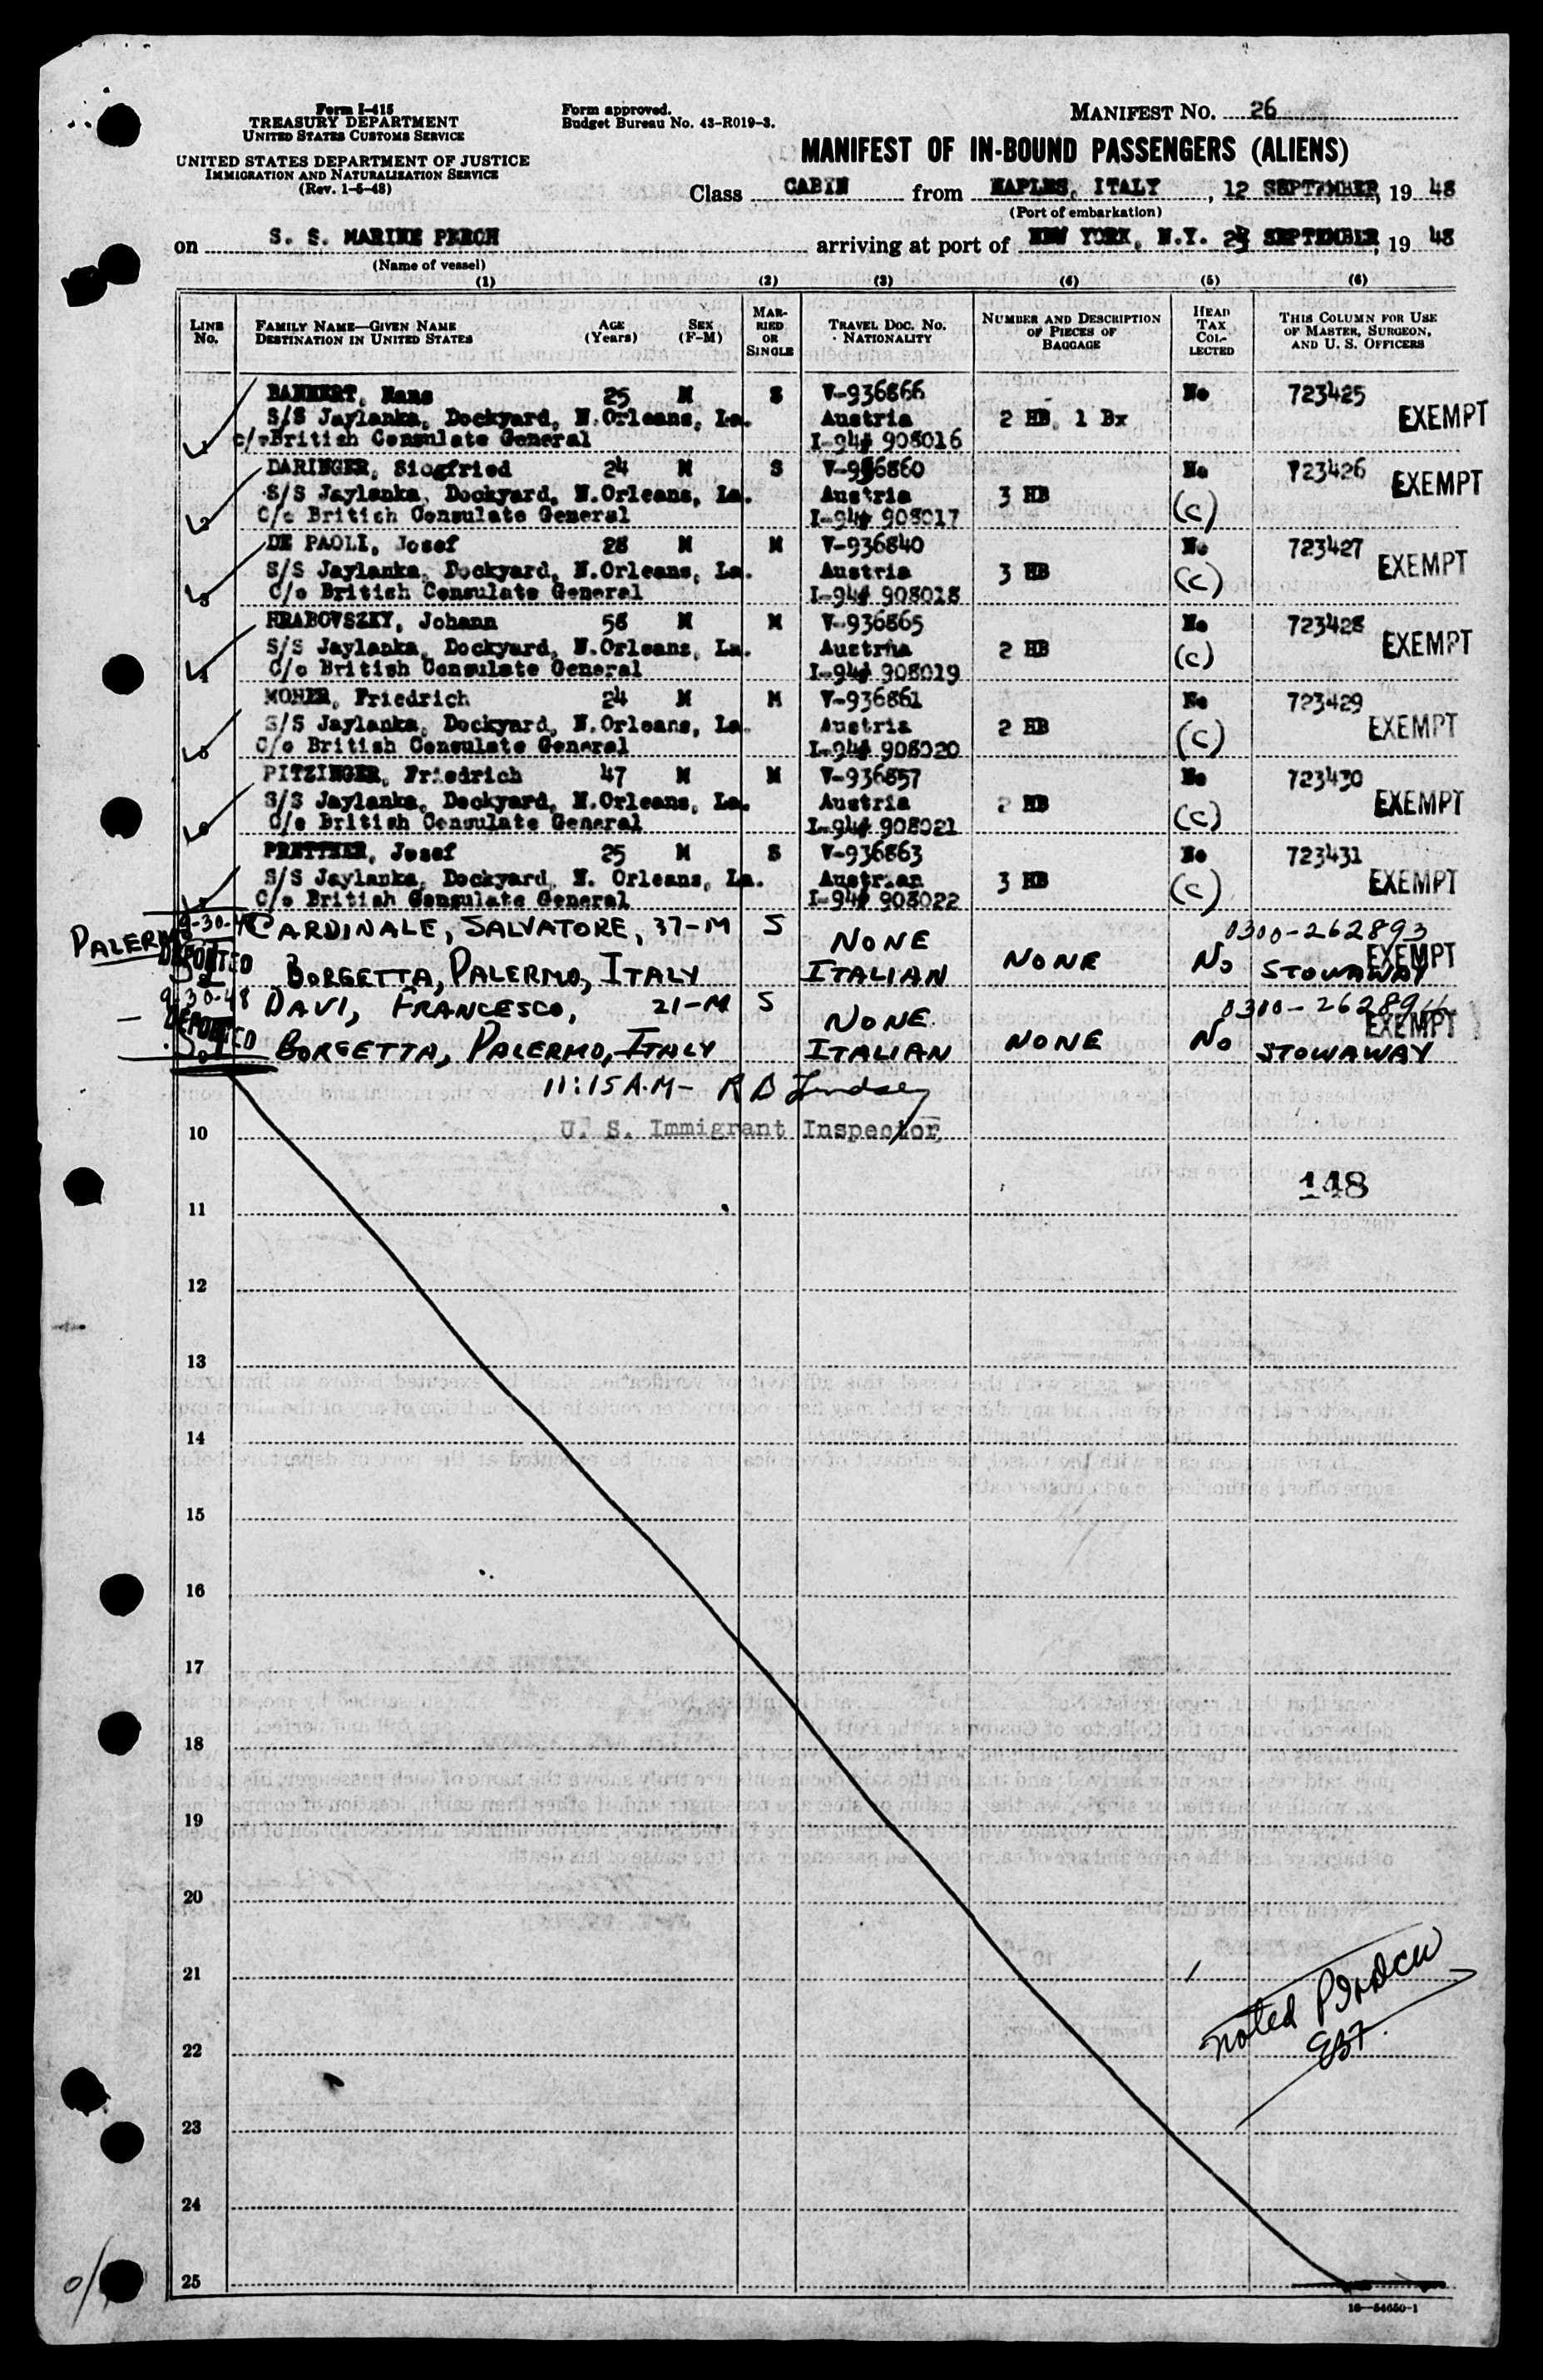 Form I-415
TREASURY DEPARTMENT
UNITED STATES CUSTOMS SERVICE
UNITED STATES DEPARTMENT OF JUSTICE
IMMIGRATION AND NATURALIZATION SERVICE
(Rev. 1-6-48)
Form approved.
Budget Bureau No. 43-R019-3.
MANIFEST NO. 26
MANIFEST OF IN-BOUND PASSENGERS (ALIENS)
Class CABIN from NAPLES, ITALY, 12 SEPTEMBER, 19 48
(Port of embarkation)
on S. S. MARINE PERCH arriving at port of NEW YORK, N.Y. SEPTEMBER, 19 48
(Name of vessel)
(1) (2) (3) (4) (5) (6)
LINE NO. FAMILY NAME—GIVEN NAME DESTINATION IN UNITED STATES AGE (Years) SEX (F-M) MARRIED OR SINGLE TRAVEL DOC. NO. NATIONALITY NUMBER AND DESCRIPTION OF PIECES OF BAGGAGE HEAD TAX COLLECTED THIS COLUMN FOR USE OF MASTER, SURGEON, AND U. S. OFFICERS
BANNERT, Hans 25 M S V-936866 No 723425
S/S Jaylanka, Dockyard, N.Orleans, La. Austria 2 HB, 1 Bx EXEMPT
1 c/o British Consulate General I-94# 908016
DARINGER, Siegfried 24 M S V-936860 No 723426
S/S Jaylanka, Dockyard, N.Orleans, La. Austria 3 HB EXEMPT
2 C/o British Consulate General I-94# 908017 (C)
DE PAOLI, Josef 28 M M V-936840 No 723427
S/S Jaylanka, Dockyard, N.Orleans, La. Austria 3 HB EXEMPT
3 C/o British Consulate General I-94# 908018 (C)
HRABOVSZKY, Johann 58 M M V-936865 No 723428
S/S Jaylanka, Dockyard, N.Orleans, La. Austria 2 HB EXEMPT
4 C/o British Consulate General I-94# 908019 (C)
MOHER, Friedrich 24 M M V-936861 No 723429
S/S Jaylanka, Dockyard, N.Orleans, La. Austria 2 HB EXEMPT
5 C/o British Consulate General I-94# 908020 (C)
PITZINGER, Friedrich 47 M M V-936857 No 723430
S/S Jaylanka, Dockyard, N.Orleans, La. Austria 2 HB EXEMPT
6 C/o British Consulate General I-94# 908021 (C)
PRETTNER, Josef 25 M S V-936863 No 723431
S/S Jaylanka, Dockyard, N. Orleans, La. Austrian 3 HB EXEMPT
7 C/o British Consulate General I-94# 908022 (C)
PALERMO 9-30-48 CARDINALE, SALVATORE, 37-M S NONE 0300-262893
DEPORTED BORGETTA, PALERMO, ITALY ITALIAN NONE No STOWAWAY EXEMPT
9-30-48 DAVI, FRANCESCO, 21-M S NONE 0300-262894
DEPORTED BORGETTA, PALERMO, ITALY ITALIAN NONE No STOWAWAY EXEMPT
11:15 A.M- R B Lindsey
10 U. S. Immigrant Inspector
148
11
12
13
14
15
16
17
18
19
20
21
noted
22
23
24
25
16—54650-1